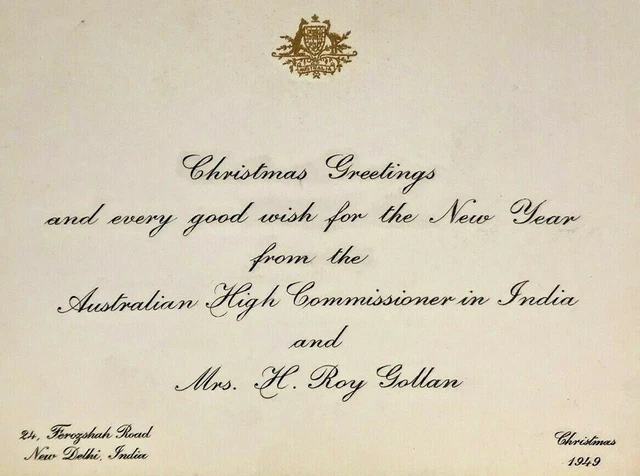 AUSTRALIA
Christmas Greetings
and every good wish for the New Year
from the
Australian High Commissioner in India
and
Mrs. H. Roy Gollan
24, Ferozshah Road
New Delhi, India
Christmas
1949